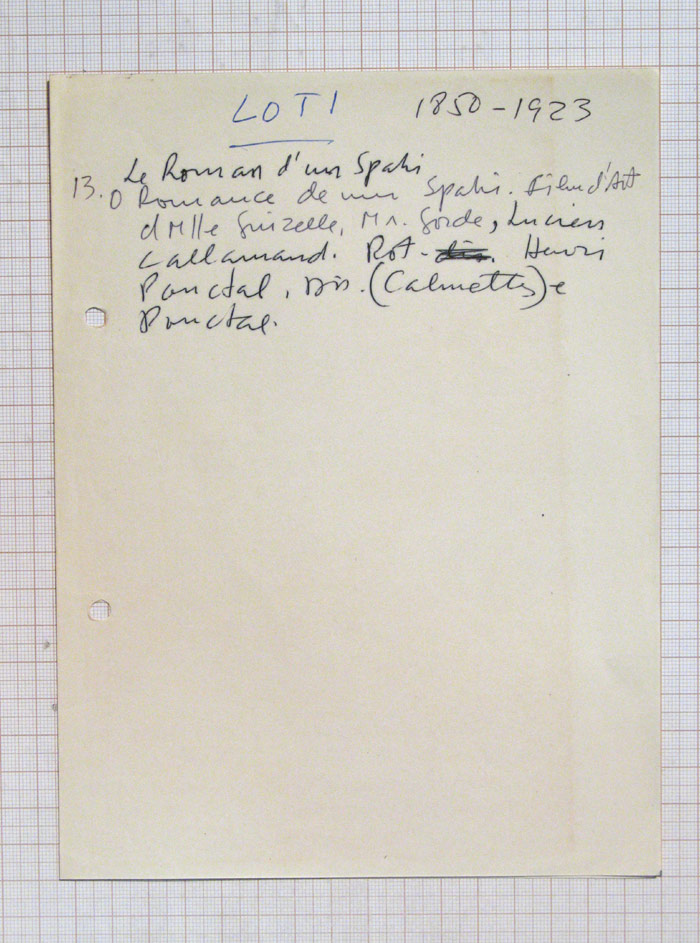 LOTI 1850-1923
Le Roman d'un Spahi
13. O Romance de um Spahi. Film d'Art
d Mlle Guizelle, Mr. Gorde, Lucien
Callamand. Rot. Henri
Pouctal, Dir. (Calmettes) e
Pouctal.